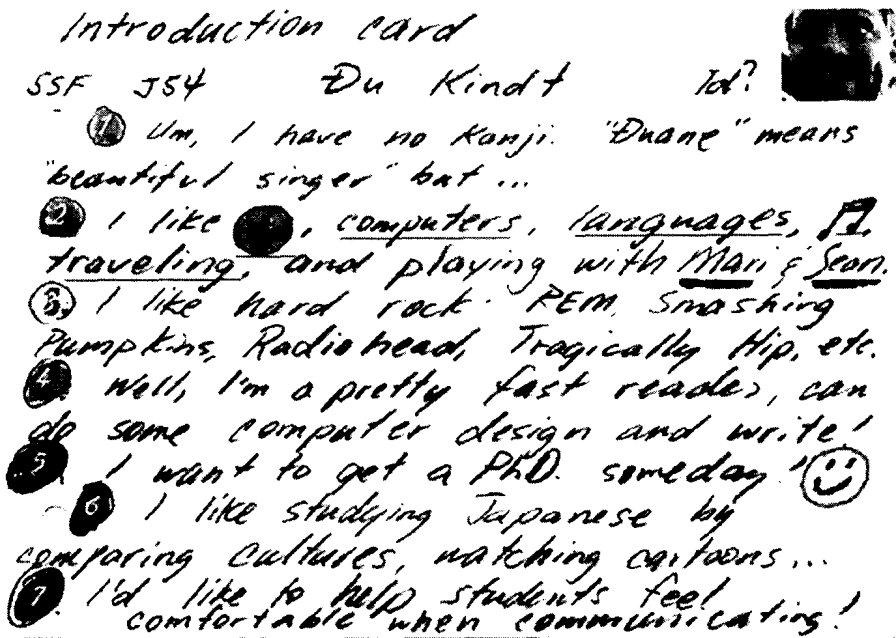 Introduction card
SSF J54 Đu Kindt Id?
1 Um, I have no Kanji. "Đuane" means
"beautiful singer" but ...
2 I like , computers, languages, ♫,
traveling, and playing with Mari & Sean.
3. I like hard rock. REM, Smashing
Pumpkins, Radiohead, Tragically Hip, etc.
4. Well, I'm a pretty fast reader, can
do some computer design and write!
5. I want to get a PhD. someday!
6 I like studying Japanese by
comparing cultures, watching cartoons...
7. I'd like to help students feel
comfortable when communicating!